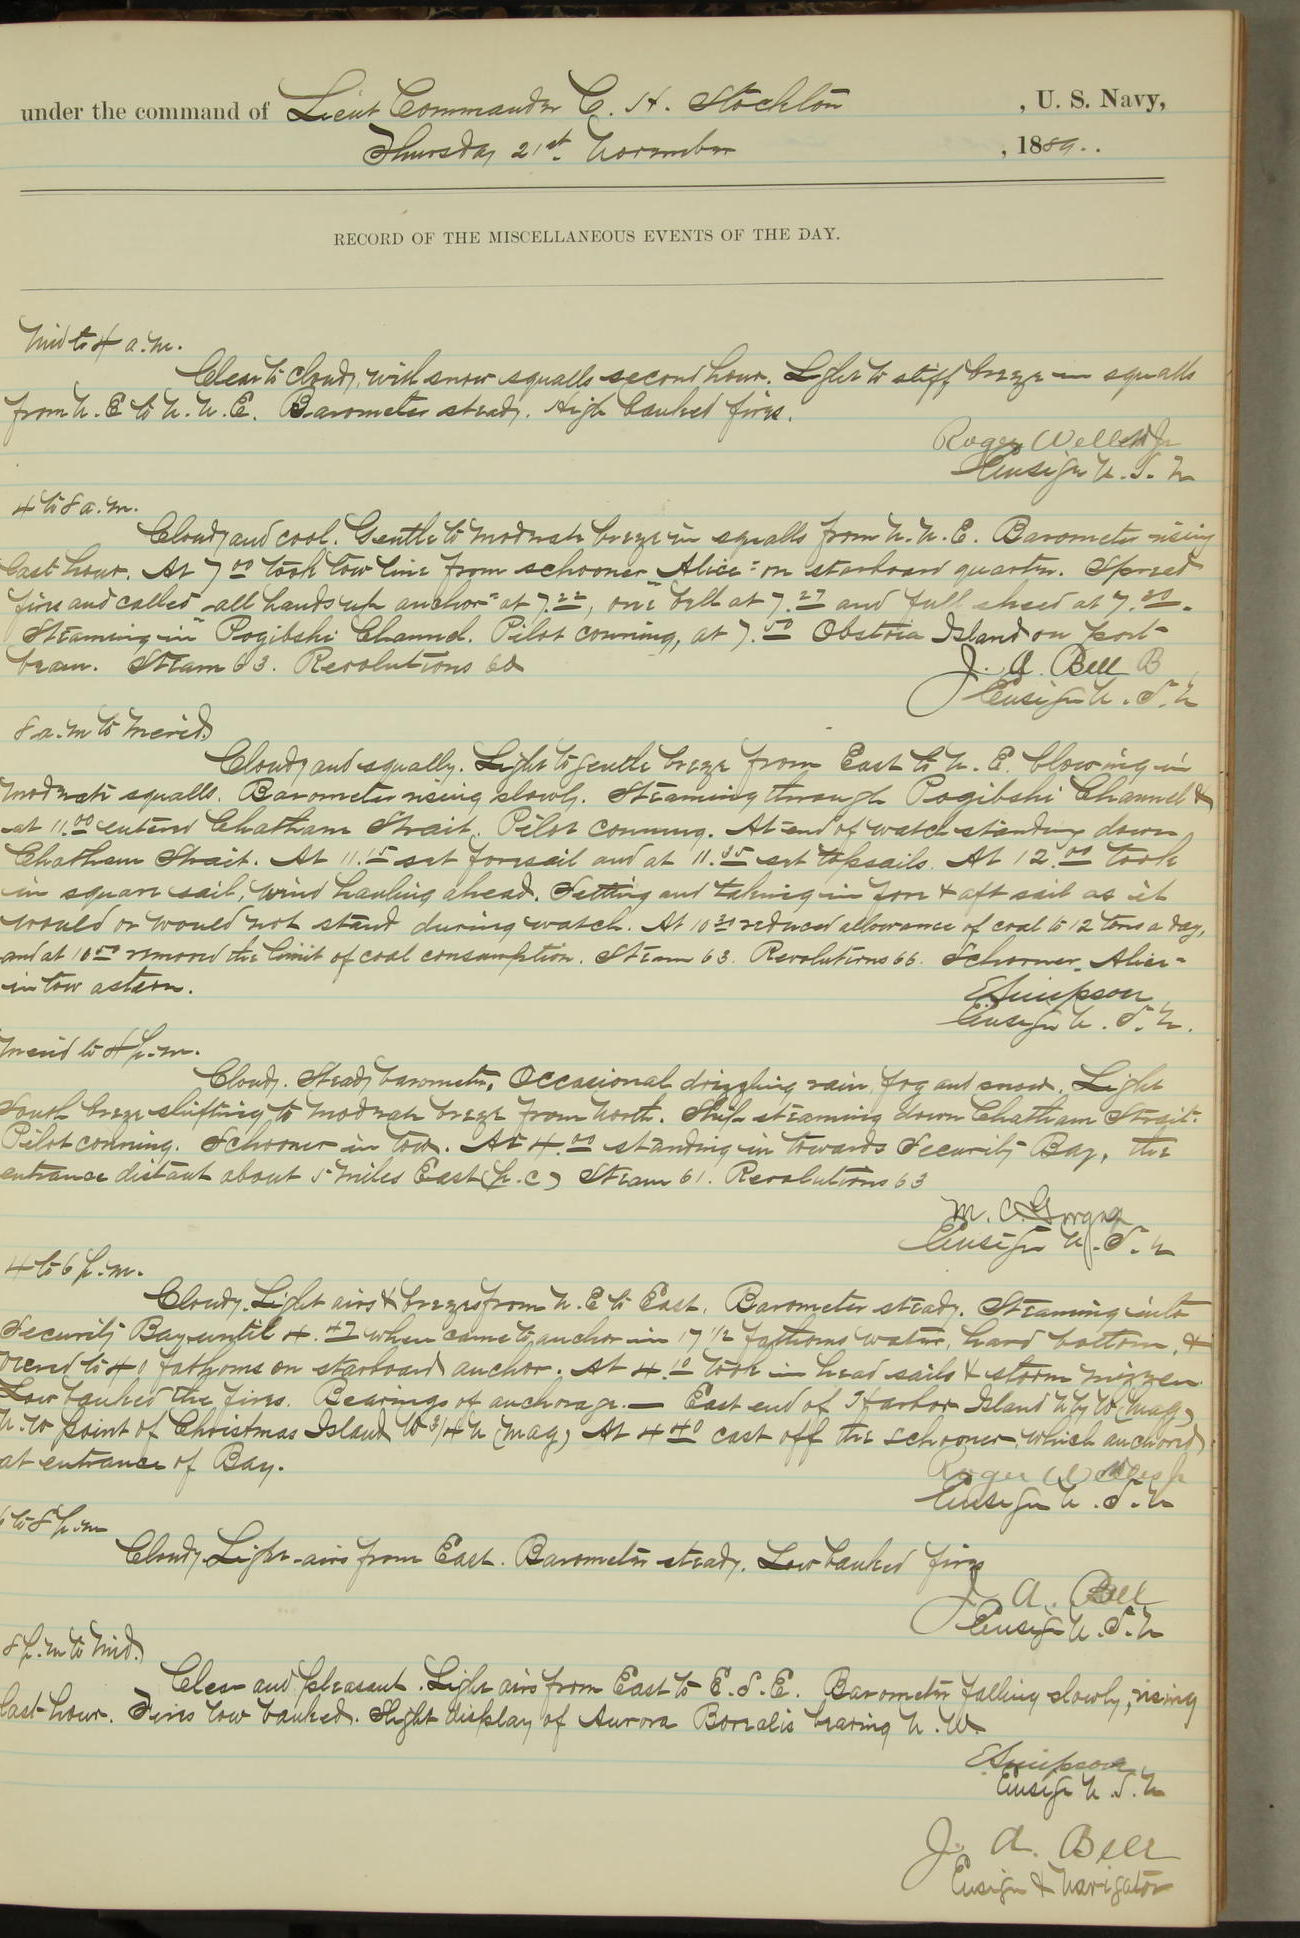 under the command of Lieut Commander C. H. Stockton , U. S. Navy,
Thursday 21st November , 1889.
RECORD OF THE MISCELLANEOUS EVENTS OF THE DAY.
Mid to 4 a.m.
Clear to cloudy, with snow squalls second hour. Light to stiff breeze in squalls
from N.E to N.N.E. Barometer steady. High banked fires.
Roger Welles Jr
Ensign U.S.N
4 to 8 a.m.
Cloudy and cool. Gentle to moderate breeze in squalls from N.N.E. Barometer rising
last hour. At 7.00 took tow line from schooner "Alice" on starboard quarter. Spread
fires and called "all hands up anchor" at 7.22, one bell at 7.27 and full speed at 7.30.
Steaming in Pogibshi Channel. Pilot conning, at 7.50 Island on port
beam. Steam 63. Revolutions 60
J. A. Bell
Ensign U.S.N
8 a.m to Merid.
Cloudy and squally. Light to gentle breeze from East to N.E. blowing in
moderate squalls. Barometer rising slowly. Steaming through Pogibshi Channel &
at 11.00 entered Chatham Strait. Pilot conning. At end of watch standing down
Chatham Strait. At 11.15 set foresail and at 11.35 set topsails. At 12.00 took
in square sail, wind hauling ahead. Setting and taking in fore & aft sail as it
would or would not stand during watch. At 10 30 reduced allowance of coal to 12 tons a day,
and at 10 50 removed the limit of coal consumption. Steam 63. Revolutions 66. Schooner "Alice"
in tow astern.
E Simpson
Ensign U.S.N.
Merid to 4 p.m.
Cloudy. Steady barometer. Occasional drizzling rain, fog and snow. Light
South breeze shifting to moderate breeze from North. Ship steaming down Chatham Strait.
Pilot conning. Schooner in tow. At 4.00 standing in towards Security Bay, the
entrance distant about 5 miles East (p.c) Steam 61. Revolutions 63
M. C. Gorgas
Ensign U.S.N
4 to 6 p.m.
Cloudy. Light airs & breezes from N.E to East. Barometer steady. Steaming into
Security Bay until 4.47 when came to anchor in 17 1/2 fathoms water, hard bottom, &
veered to 40 fathoms on starboard anchor. At 4.10 took in head sails & storm mizzen.
Low banked the fires. Bearings of anchorage.— East end of Harbor Island N by W (mag)
N.W point of Christmas Island W 3/4 N (mag) At 4 40 cast off the schooner, which anchored
at entrance of Bay.
Roger Welles Jr
Ensign U.S.N
6 to 8 p.m
Cloudy. Light airs from East. Barometer steady. Low banked fires
J. A. Bell
Ensign U.S.N
8 p.m to Mid.
Clear and pleasant. Light airs from East to E.S.E. Barometer falling slowly, rising
last hour. Fires low banked. Slight display of Aurora Borealis bearing N.W.
E Simpson
Ensign U.S.N
J. A. Bell
Ensign & Navigator